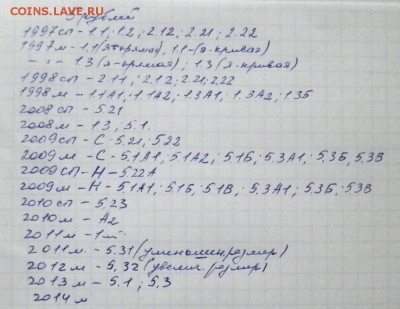 COINS.LAVE.RU
5 рублей
1997сп - 1.1; 1.2; 2.12; 2.21; 2.22
1997м - 1.1 (я-прямая), 1.1 - (я-кривая)
-:- 1.3 (я-прямая); 1.3 (я-кривая)
1998сп - 2.11; 2.12; 2.21; 2.22
1998м - 1.1А1; 1.1А2; 1.3А1; 1.3А2; 1.3Б
2008сп - 5.21
2008м - 1.3; 5.1.
2009сп - С - 5.21; 5.22
2009м - С - 5.1А1; 5.1А2; 5.1Б; 5.3А1; 5.3Б; 5.3В
2009сп - Н - 5.22А
2009м - Н - 5.1А1; 5.1Б; 5.1В; 5.3А1; 5.3Б; 5.3В
2010сп - 5.23
2010м - А2
2011м - 1шт
2011м - 5.31 (уменьшен. размер)
2012м - 5,32 (увелич. размер)
2013м - 5.1; 5,3
2014м